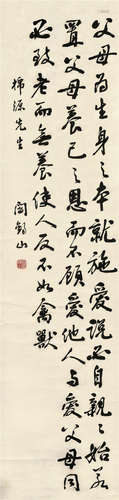 父母為生身之本就施愛說必自親之始若
置父母養己之恩而不顧愛他人與愛父母同
必致老而無養使人反不如禽獸
楊源先生
閻錫山